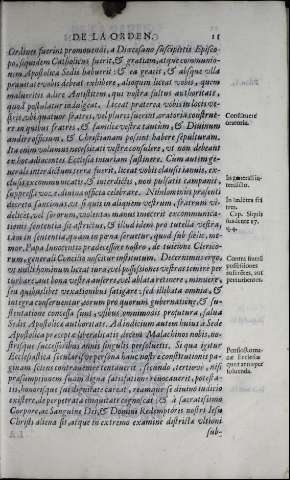 DE LA ORDEN. 15
Ordines fuerint promouendi, a Diœcesano suscipietis Episco-
po, siquidem Catholicus fuerit, & gratiam, atque communio-
nem Apostolicæ Sedis habuerit: & ea gratis, & absque vlla
prauitate vobis debeat exhibere, alioquin liceat vobis, quem
malueritis adire Antistitem, qui nostra fultus authoritate,
quod postulatur indulgeat. Liceat præterea vobis in locis ve-
stris, vbi quatuor fratres, vel plures fuerint, oratoria construe-
re in quibus fratres, & familia vestra tantum, & Diuinum
audire officium, & Christianam possint habere sepulturam.
Ita enim volumus necessitati vestræ consulere, vt non debeant
ex hoc adiacentes Ecclesiæ iniuriam sustinere. Cum autem ge-
nerale interdictum terræ fuerit, liceat vobis clausis ianuis, ex-
clusis excommunicatis, & interdictis, non pulsatis campanis,
suppressa voce, diuina officia celebrare. Nihilominus præsenti
decreto sancimus, vt si quis in aliquem vestrum, fratrum vi-
delicet, vel sororum, violentas manus iniecerit excommunica-
tionis sententia sit astrictus, & illud idem pro tutella vestra,
tam in sententia, quam in pœna seruetur, quod sub felic. me-
mor. Papa Innocentio prædecessore nostro, de tuitione Clerico-
rum, generali Concilio noscitur institutum. Decernimus ergo,
vt nulli hominum liceat iura, vel possessiones vestras temere per
turbare, aut bona vestra auferre, vel ablata retinere, minuere,
seu quibuslibet vexationibus fatigare, sed illibata omnia, &
integra conseruentur, eorum pro quorum gubernatione, & su-
stentatione concessa sunt, vsibus omnimodis profutura, salua
Sedis Apostolicæ authoritate. Ad indicium autem huius à Sede
Apostolica percepte liberalitatis decem Malachinos nobis, no-
strisque successoribus annis singulis persoluetis. Si qua igitur
Ecclesiastica sæcularisve persona hanc nostræ constitutionis pa-
ginam sciens contra eam venire tentauerit, secundo, tertiove, nisi
præsumptionem suam digna satisfactione reuocauerit, potesta-
tis, honorisque sui dignitate careat, reamque se diuino iudicio
existere, de perpetrata iniquitate cognoscat; & à sacratissimo
Corpore, ac Sanguine Dei, & Domini Redemptoris nostri Iesu
Christi aliena fiat, atque in extremo examine districtæ vltioni
sub-
Construere
oratoria.
In generali in-
terdicto.
Cap. Siquis
suadente 17.
q. 4.